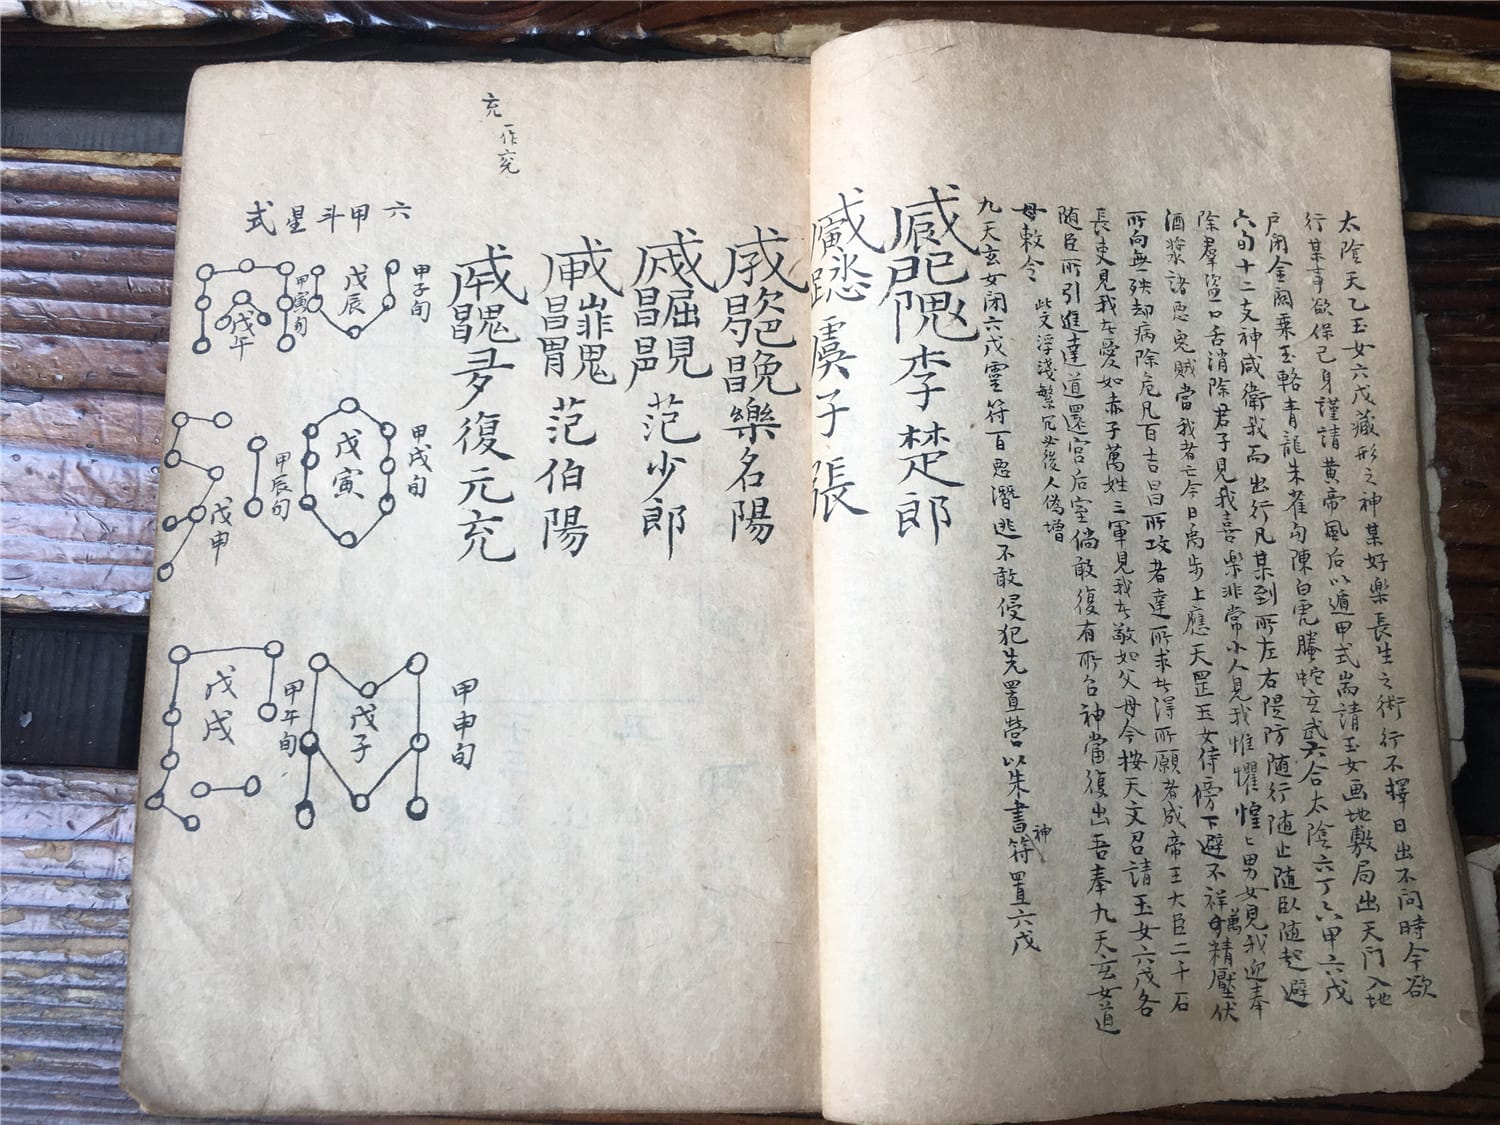 太陰天乙玉女六戊藏形之神某好樂長生之術行不擇日出不問時今欲
行某事欲保己身謹請黃帝風后以遁甲式耑請玉女画地敷局出天門入地
戶閉金關乘玉輅青龍朱雀勾陳白虎螣蛇玄武六合太陰六丁六甲六戊
六旬十二支神咸衛我而出行凡某到所左右隄防随行随止随臥随起避
除羣盜口舌消除君子見我喜樂非常小人見我惟懼惶〻男女見我迎奉
酒漿諸惡鬼賊當我者亡今日禹步上應天罡玉女侍傍下避不祥萬精壓伏
所向無殃却病除危凡百吉昌所攻者達所求者得所願者成帝王大臣二千石
長吏見我者愛如赤子萬姓三軍見我者敬如父母今按天文召請玉女六戊各
随臣所引進達道還宮后室倘敢復有所召神當復出吾奉九天玄女道
母敕令
此文浮淺繁冗必後人偽增
九天玄女閉六戊靈符百惡潛逃不敢侵犯先置營以朱書符置六戊
神
李楚郎
虞子張
樂名陽
范少郎
范伯陽
復元充
充
一作兖
六甲斗星式
甲子旬
戊辰
甲寅旬
戊午
甲戌旬
戊寅
甲辰旬
戊申
甲申旬
戊子
甲午旬
戊戌